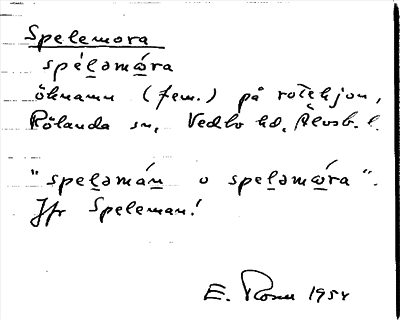 Spelemora
spèḷəmω̲ra
öknamn (fem.) på rotehjon,
Rölanda sn, Vedbo hd, Älvsb. l.
"speḷəmán̲ o speḷəmώ̲ra".
Jfr Speleman!
E. Rosén 1954